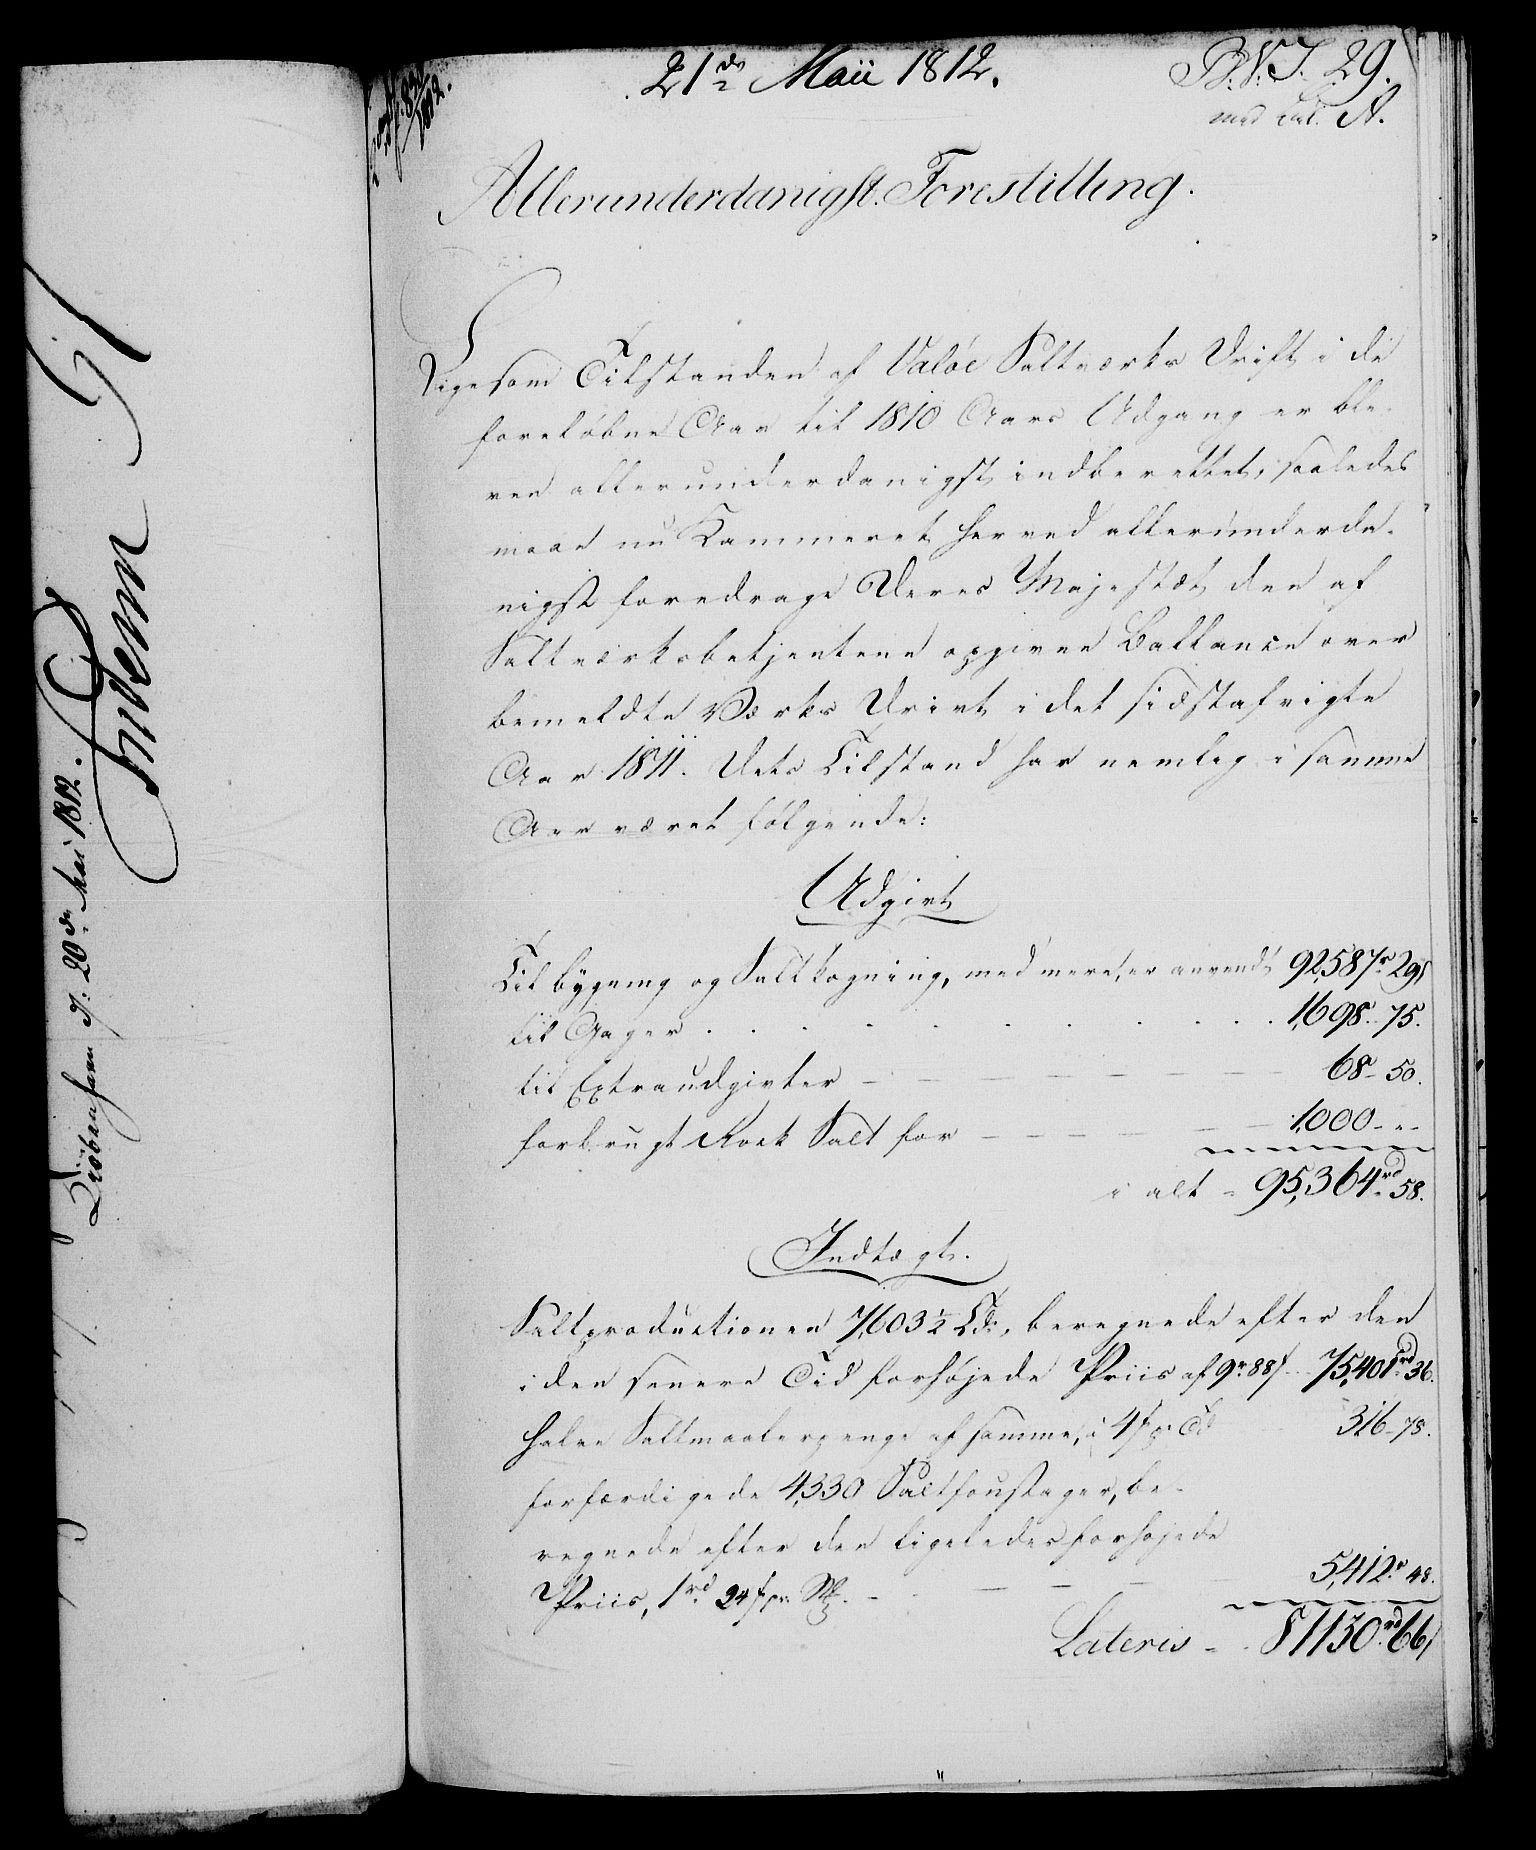 21de Maii 1812.
R:V:J. 29.
med Lit. A.
Allerunderdanigst. Forestilling.
Ligesom Tilstanden af Valøe Saltværks Drift i de
foreløbne Aar til 1810 Aars Udgang er ble-
ven allerunderdanigst indberettet, saaledes
maae nu Kammeret herved allerunderda-
nigst foredrage Deres Majestæt den af
Saltværksbetjentene opgivne Ballance over
bemeldte Værks Drivt i det sidstafvigte
Aar 1811. Dets Tilstand har nemlig i samme
Aar været følgende:
Udgivt
Til bygning og Saltkogning, med meret, er anvendt 92,587r 29s
til Gager . . . . . . . . . . 1,698. 75.
til Extraudgivter — — — — — — — 68 - 50.
forbrugt Rock Salt for — — — — — — 1,000 - -
i alt - 95,364rd 58.
Indtægt.
Saltproductionen 7,603 1/2 Td:, beregnede efter den
i den senere Tid forhøjede Priis af 9r 88s 75,401rd 36.
halve Saltmaalerpenge af samme, i 4s pr Td 316 - 78.
forfærdigede 4,330 Saltfoustager, be-
regnede efter den ligeledes forhøjede
Priis, 1rd 24s pr. Stk. - — — — 5,412r 48.
Lateris - - 81130rd 66s
Kiöbenhavn d: 20de Mai 1812.